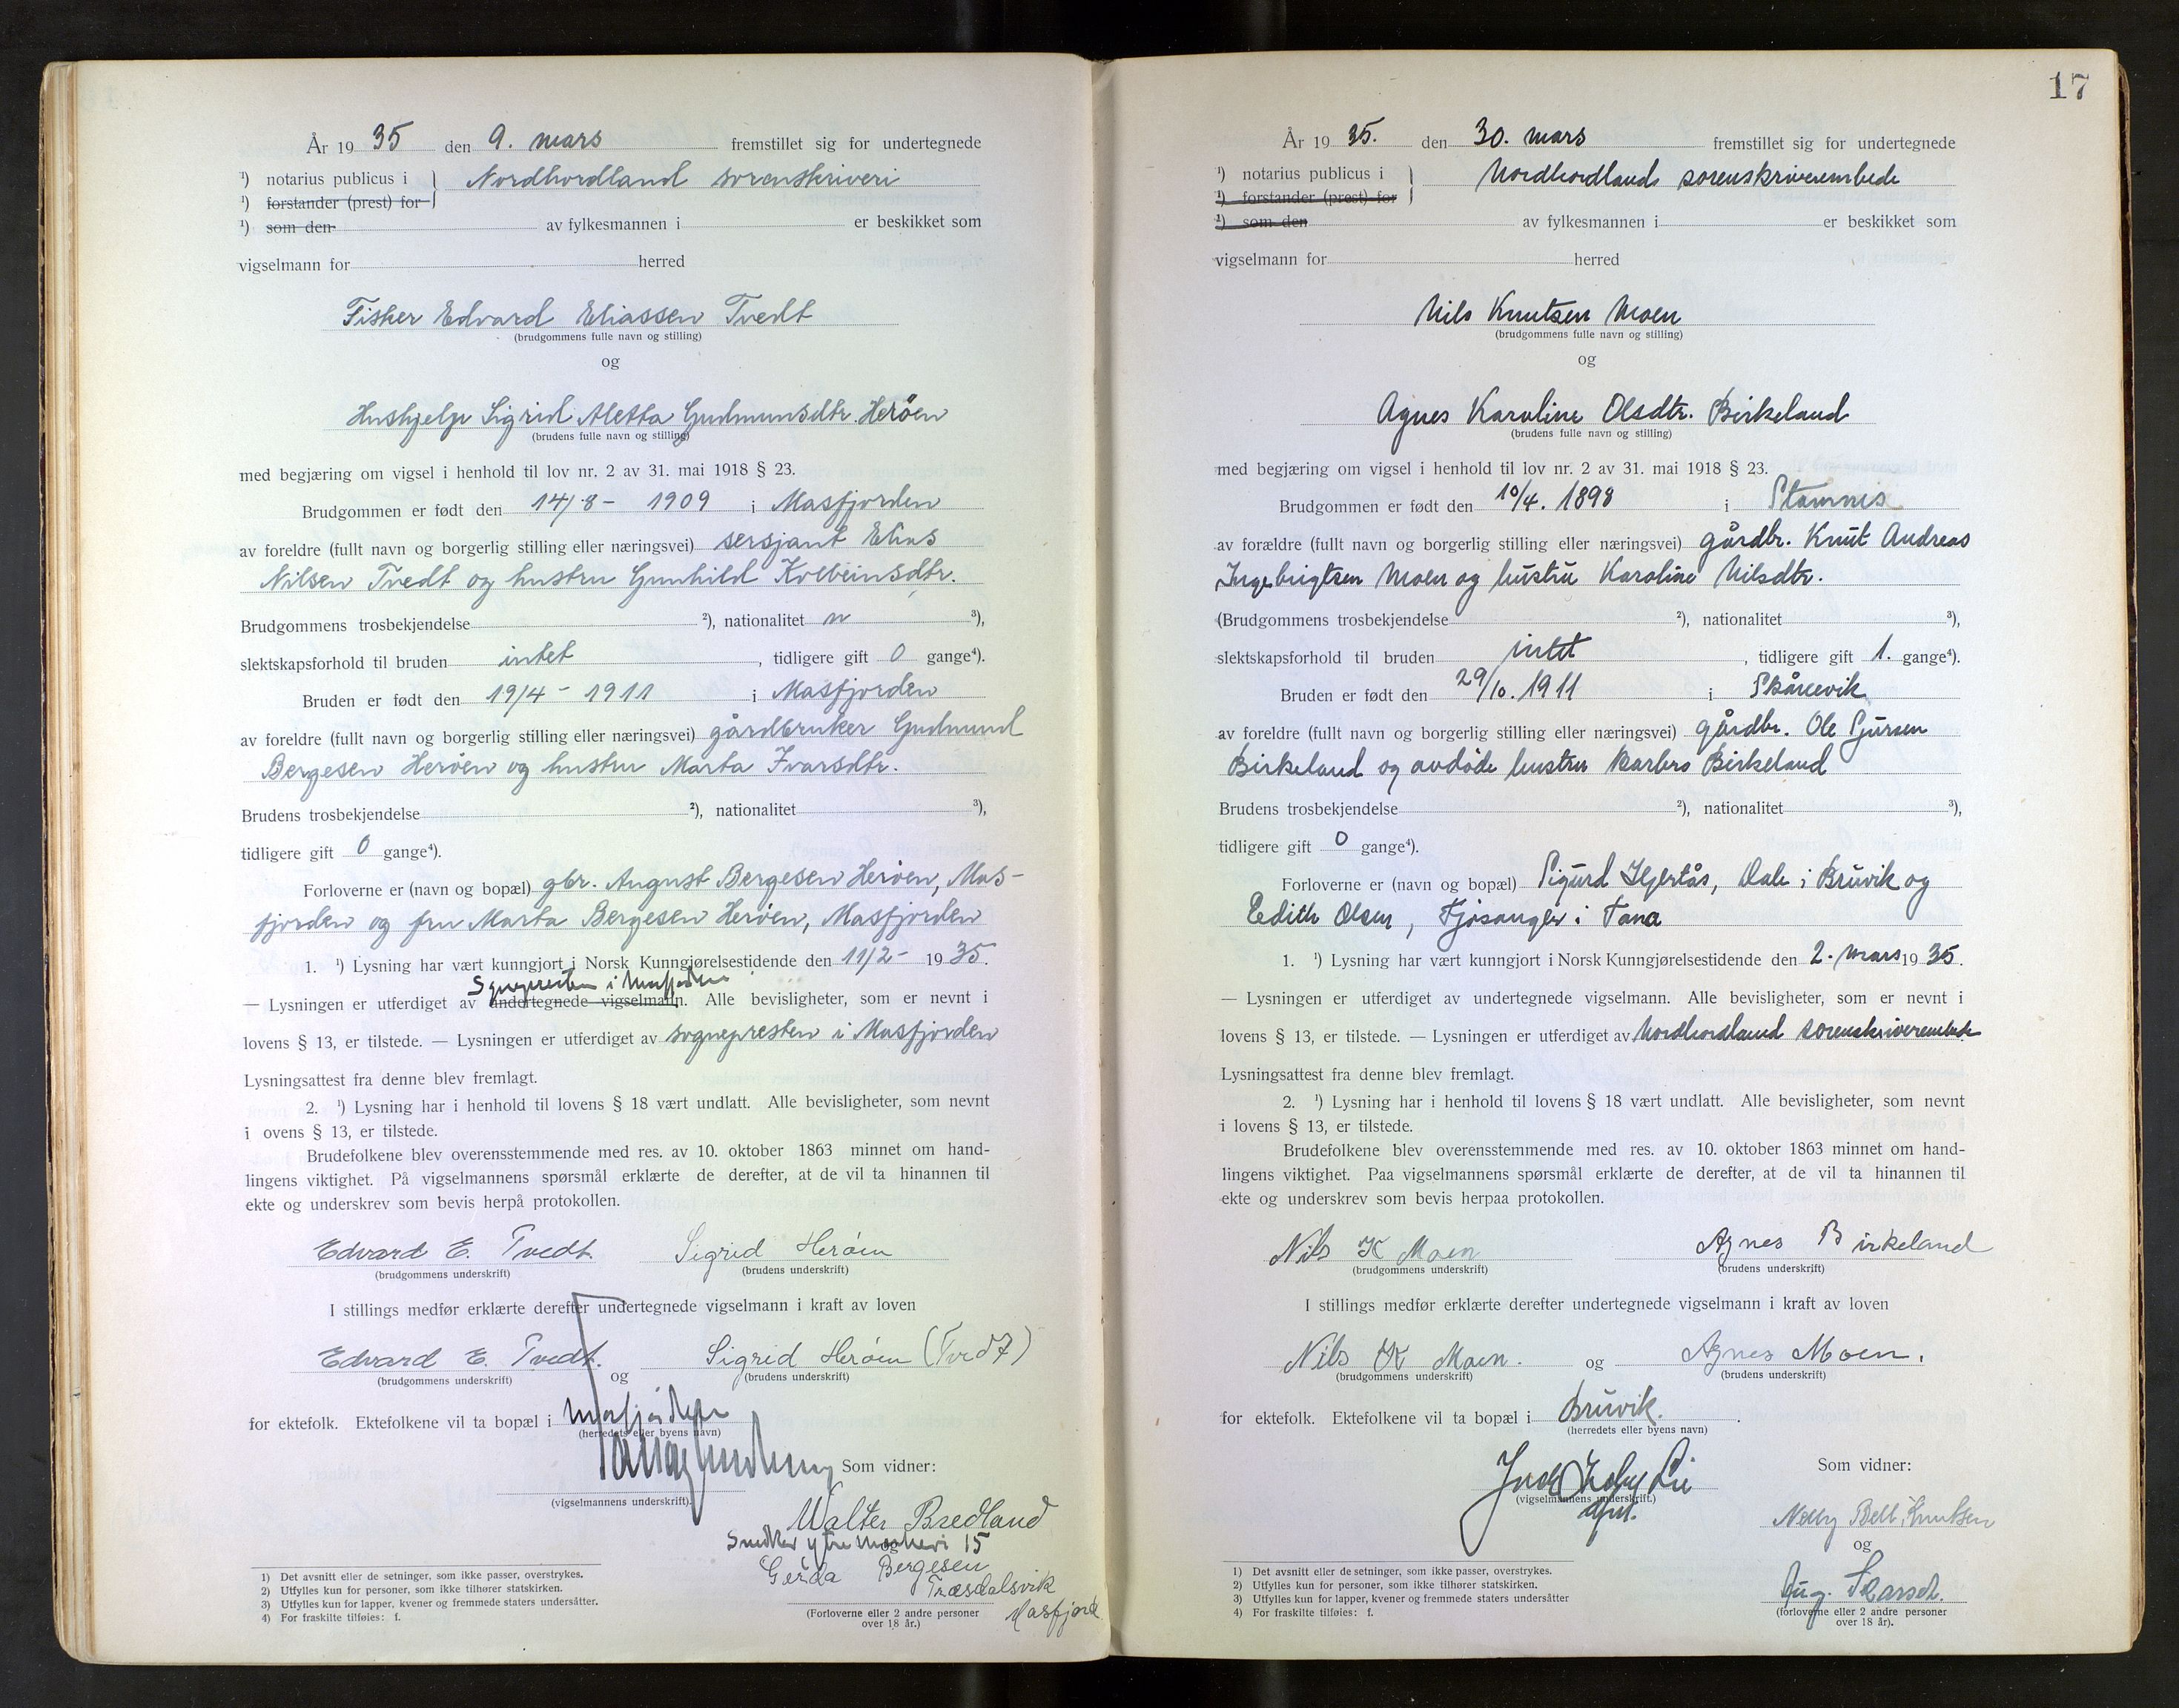 År 19 35 den 9. mars fremstillet sig for undertegnede
¹) notarius publicus i } Nordhordland sorenskriveri
¹) forstander (prest) for
¹) som den av fylkesmannen i er beskikket som
vigselmann for herred
Fisker Edvard Eliassen Tvedt
(brudgommens fulle navn og stilling)
og
Hushjelp Sigrid Aletta Gudmunsdtr. Herøen
(brudens fulle navn og stilling)
med begjæring om vigsel i henhold til lov nr. 2 av 31. mai 1918 § 23.
Brudgommen er født den 14/8 - 1909 i Masfjorden
av foreldre (fullt navn og borgerlig stilling eller næringsvei) sersjant Elias
Nilsen Tvedt og hustru Gunhild Kolbeinsdtr.
Brudgommens trosbekjendelse ²), nationalitet n ³),
slektskapsforhold til bruden intet , tidligere gift 0 gange⁴).
Bruden er født den 19/4 - 1911 i Masfjorden
av foreldre (fullt navn og borgerlig stilling eller næringsvei) gårdbruker Gudmund
Bergesen Herøen og hustru Marta Ivarsdtr.
Brudens trosbekjendelse ²), nationalitet ³),
tidligere gift 0 gange⁴).
Forloverne er (navn og bopæl) gbr. August Bergesen Herøen, Mas-
fjorden og fru Marta Bergesen Herøen, Masfjorden
1. ¹) Lysning har vært kunngjort i Norsk Kunngjørelsestidende den 11/2 - 19 35.
Sognepresten i Masfjorden
— Lysningen er utferdiget av undertegnede vigselmann. Alle bevisligheter, som er nevnt i
lovens § 13, er tilstede. — Lysningen er utferdiget av sognepresten i Masfjorden
Lysningsattest fra denne blev fremlagt.
2. ¹) Lysning har i henhold til lovens § 18 vært undlatt. Alle bevisligheter, som nevnt
i ovens § 13, er tilstede.
Brudefolkene blev overensstemmende med res. av 10. oktober 1863 minnet om hand-
lingens viktighet. På vigselmannens spørsmål erklærte de derefter, at de vil ta hinannen til
ekte og underskrev som bevis herpå protokollen.
Edvard E. Tvedt Sigrid Herøen
(brudgommens underskrift) (brudens underskrift)
I stillings medfør erklærte derefter undertegnede vigselmann i kraft av loven
Edvard E. Tvedt. og Sigrid Herøen (Tvedt)
(brudgommens underskrift) (brudens underskrift)
for ektefolk. Ektefolkene vil ta bopæl i Masfjorden
(herredets eller byens navn)
Som vidner:
(vigselmannens underskrift).
Walter Bredland
og
Gerda Bergesen
Træsdalsvik
Masfjord
(Forloverne eller 2 andre personer
over 18 år.)
1) Det avsnitt eller de setninger, som ikke passer, overstrykes.
2) Utfylles kun for personer, som ikke tilhører statskirken.
3) Utfylles kun for lapper, kvener og fremmede staters undersåtter.
4) For fraskilte tilføies: f.
17
År 19 35. den 30. mars fremstillet sig for undertegnede
¹) notarius publicus i } Nordhordlands sorenskriverembede
¹) forstander (prest) for
¹) som den av fylkesmannen i er beskikket som
vigselmann for herred
Nils Knutsen Moen
(brudgommens fulle navn og stilling)
og
Agnes Karoline Olsdtr. Birkeland
(brudens fulle navn og stilling)
med begjæring om vigsel i henhold til lov nr. 2 av 31. mai 1918 § 23.
Brudgommen er født den 10/4. 1898 i Stamnes
av forældre (fullt navn og borgerlig stilling eller næringsvei) gårdbr. Knut Andreas
Ingebrigtsen Moen og hustru Karoline Nilsdtr.
(Brudgommens trosbekjendelse ²), nationalitet ³),
slektskapsforhold til bruden intet , tidligere gift 1. gange⁴).
Bruden er født den 29/10. 1911 i Skånevik
av foreldre (fullt navn og borgerlig stilling eller næringsvei) gårdbr. Ole Sjursen
Birkeland og avdøde hustru Barbro Birkeland
Brudens trosbekjendelse ²), nationalitet ³),
tidligere gift 0 gange⁴).
Forloverne er (navn og bopæl) Sigurd Hjertås, Dale i Bruvik og
Edith Olsen, Fjøsanger i Fana
1. ¹) Lysning har vært kunngjort i Norsk Kunngjørelsestidende den 2. mars 19 35.
— Lysningen er utferdiget av undertegnede vigselmann. Alle bevisligheter, som er nevnt i
lovens § 13, er tilstede. — Lysningen er utferdiget av Nordhordland sorenskriverembede
Lysningsattest fra denne blev fremlagt.
2. ¹) Lysning har i henhold til lovens § 18 vært undlatt. Alle bevisligheter, som nevnt
i lovens § 13, er tilstede.
Brudefolkene blev overensstemmende med res. av 10. oktober 1863 minnet om hand-
lingens viktighet. Paa vigselmannens spørsmål erklærte de derefter, at de vil ta hinannen til
ekte og underskrev som bevis herpaa protokollen.
Nils K Moen Agnes Birkeland
(brudgommens underskrift) (brudens underskrift)
I stillings medfør erklærte derefter undertegnede vigselmann i kraft av loven
Nils K Moen. og Agnes Moen.
(brudgommens underskrift) (brudens underskrift)
for ektefolk. Ektefolkene vil ta bopæl i Bruvik.
(herredets eller byens navn)
Lie
Som vidner:
(vigselmannens underskrift.)
Nelly Bell Knutsen
og
Aug.
(forloverne eller 2 andre personer
over 18 år).
1) Det avsnitt eller de setninger, som ikke passer, overstrykes.
2) Utfylles kun for personer, som ikke tilhører statskirken.
3) Utfylles kun for lapper, kvener og fremmede staters undersåtter
4) For fraskilte tilføies: f.